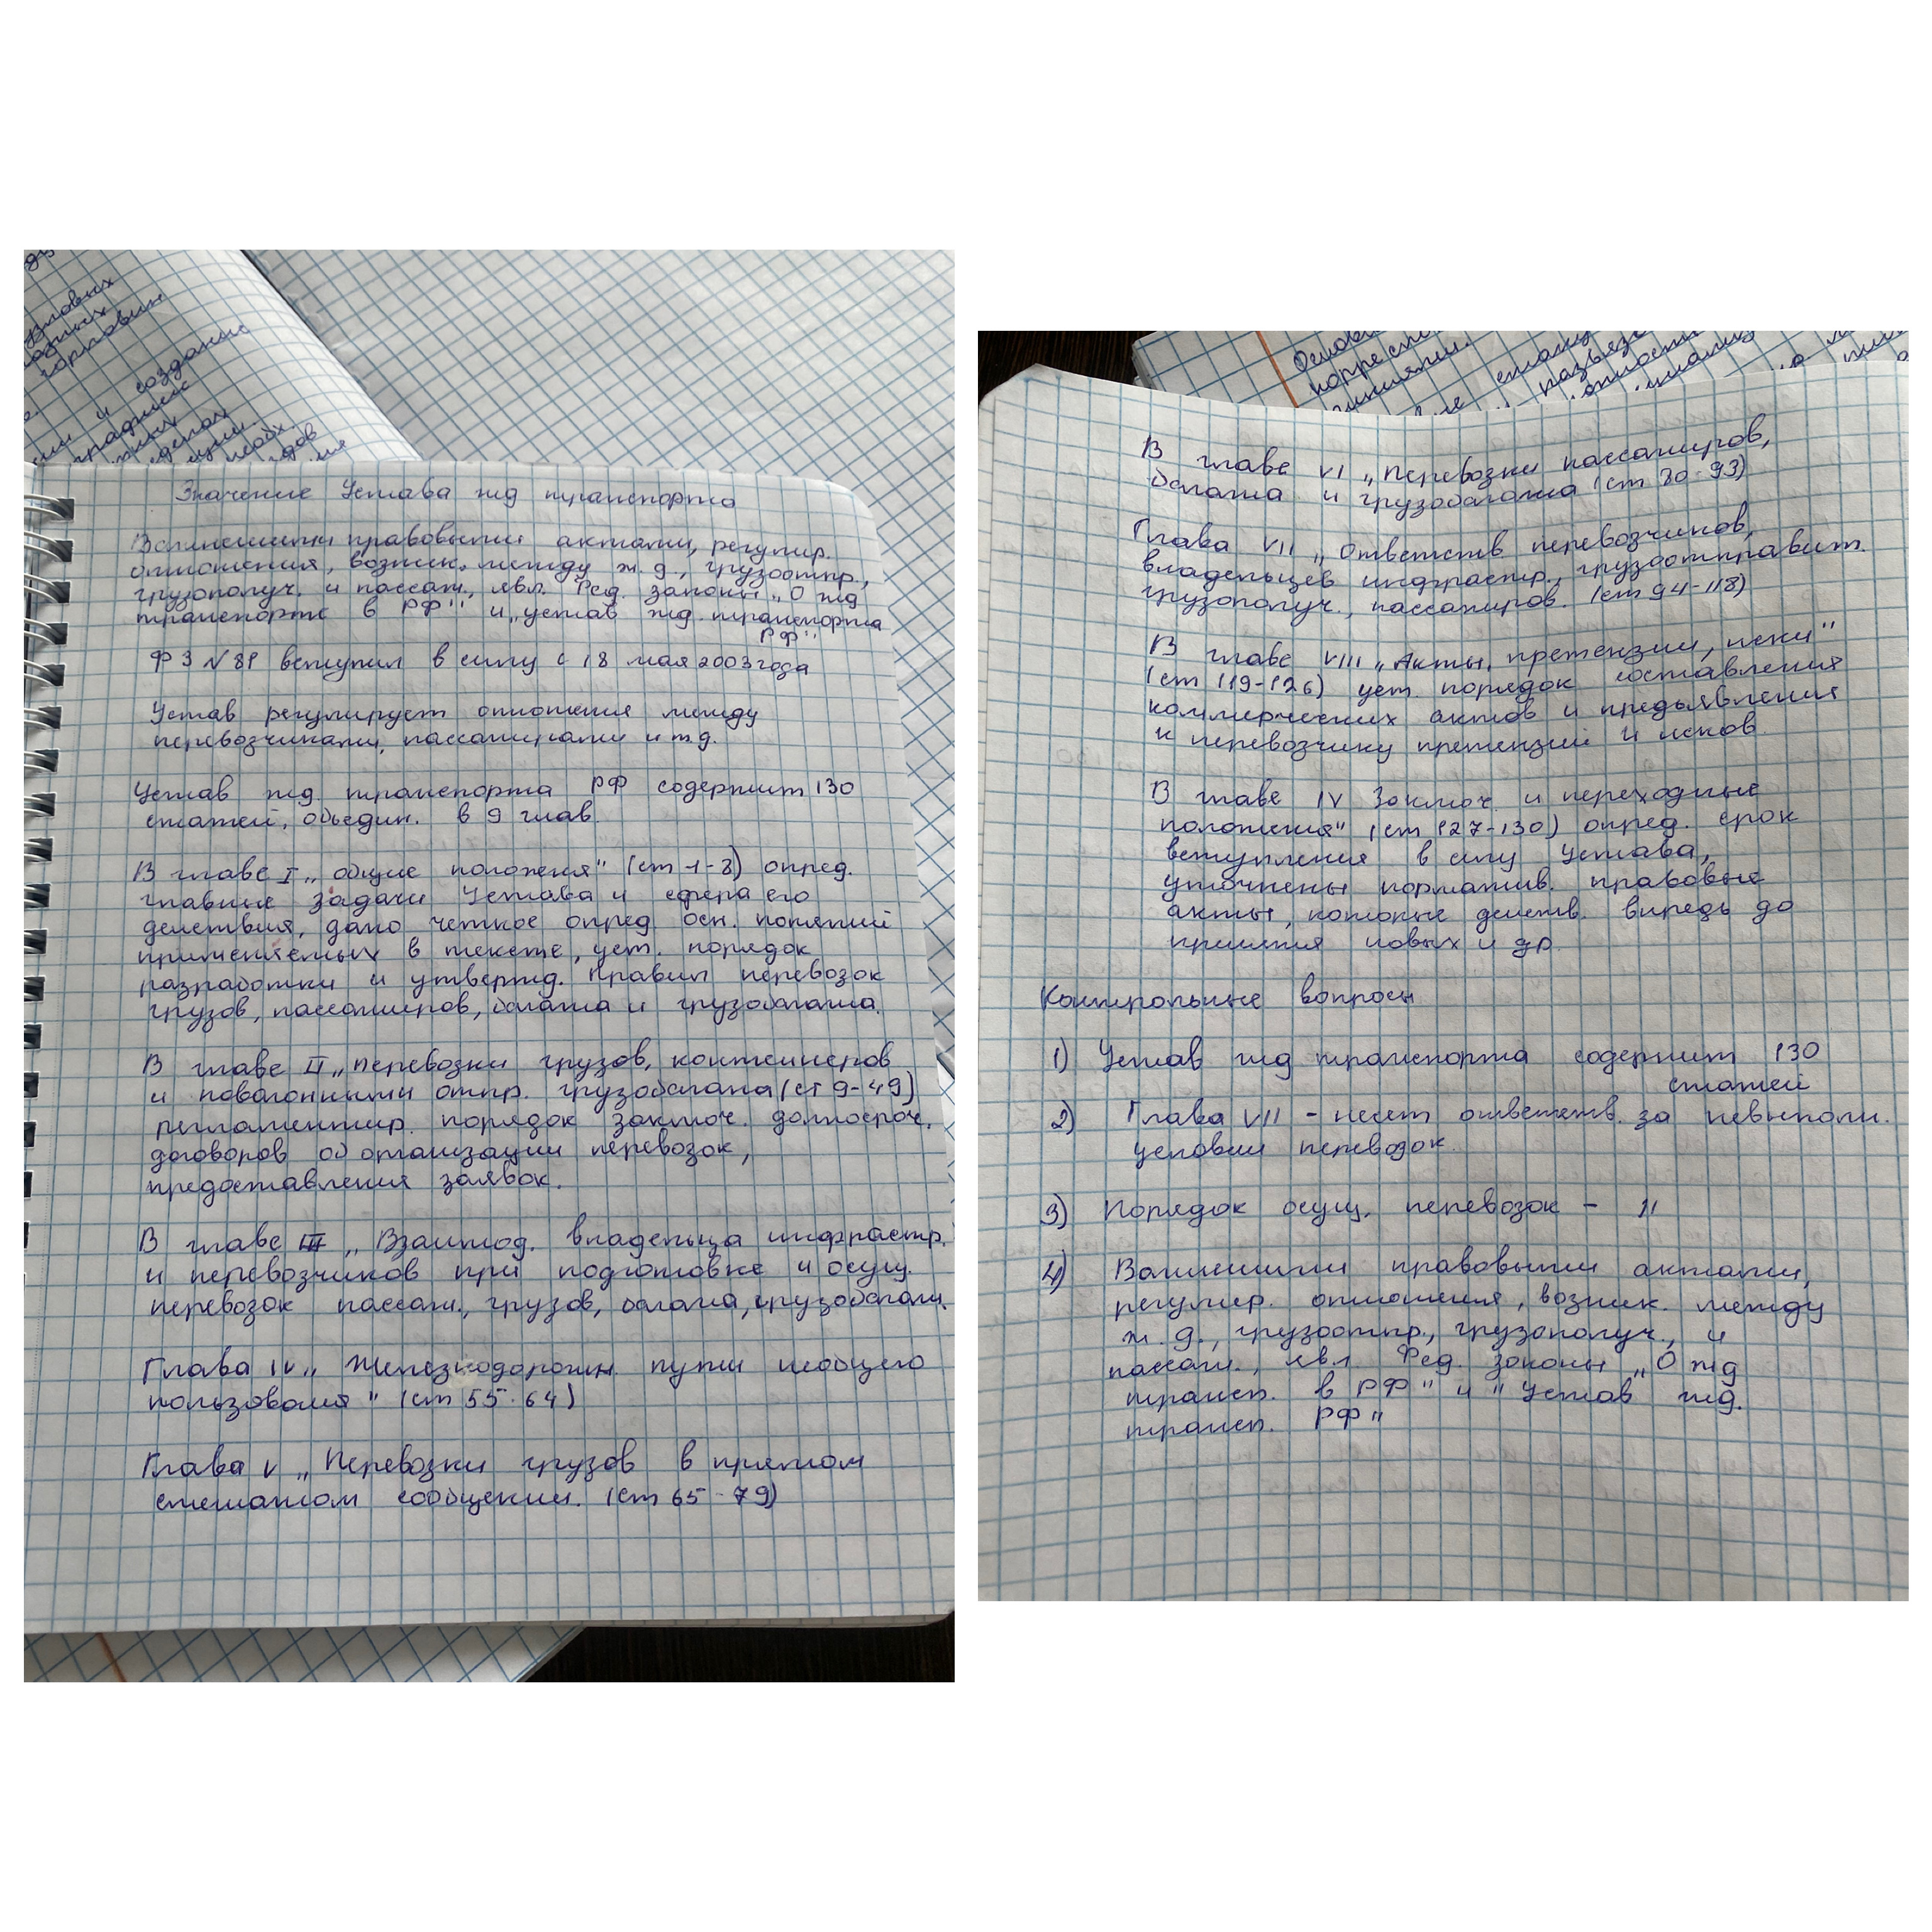 Значение Устава жд транспорта
Важнейшими правовыми актами, регулир.
отношения, возник. между ж.д., грузоотпр.,
грузополуч. и пассаж., явл. Фед. законы „О жд
транспорте в РФ" и „устав жд. транспорта
РФ"
ФЗ №81 вступил в силу с 18 мая 2003 года
Устав регулирует отношения между
перевозчиками, пассажирами и т.д.
Устав жд. транспорта РФ содержит 130
статей, объедин. в 9 глав
В главе I „общие положения" (ст 1-8) опред.
главные задачи Устава и сфера его
действия, дано четкое опред осн. понятий
применяемых в тексте, уст. порядок
разработки и утвержд. Правил перевозок
грузов, пассажиров, багажа и грузобагажа.
В главе II „перевозки грузов, контейнеров
и повагонными отпр. грузобагажа (ст 9-49)
регламентир. порядок заключ. долгосроч.
договоров об организации перевозок,
предоставления заявок.
В главе III „Взаимод. владельца инфрастр.
и перевозчиков при подготовке и осущ.
перевозок пассаж., грузов, багажа, грузобагаж.
Глава IV „Железнодорожн. пути необщего
пользования" (ст 55-64)
Глава V „Перевозки грузов в прямом
смешанном сообщении. (ст 65-79)
В главе VI „Перевозки пассажиров,
багажа и грузобагажа (ст 80-93)
Глава VII „Ответств перевозчиков,
владельцев инфрастр., грузоотправит.
грузополуч., пассажиров. (ст 94-118)
В главе VIII „Акты, претензии, иски"
(ст 119-126) уст. порядок составления
коммерческих актов и предъявления
к перевозчику претензий и исков
В главе IV Заключ. и переходные
положения" (ст 127-130) опред. срок
вступления в силу Устава,
уточнены норматив. правовые
акты, которые действ. впредь до
принятия новых и др.
Контрольные вопросы
1) Устав жд транспорта содержит 130
статей
2) Глава VII - несет ответств. за невыполн.
условии перевозок.
3) Порядок осущ. перевозок - II
4) Важнейшими правовыми актами,
регулир. отношения, возник. между
ж.д., грузоотпр., грузополуч., и
пассаж., явл. Фед. законы „О жд
трансп. в РФ" и "Устав жд.
трансп. РФ"